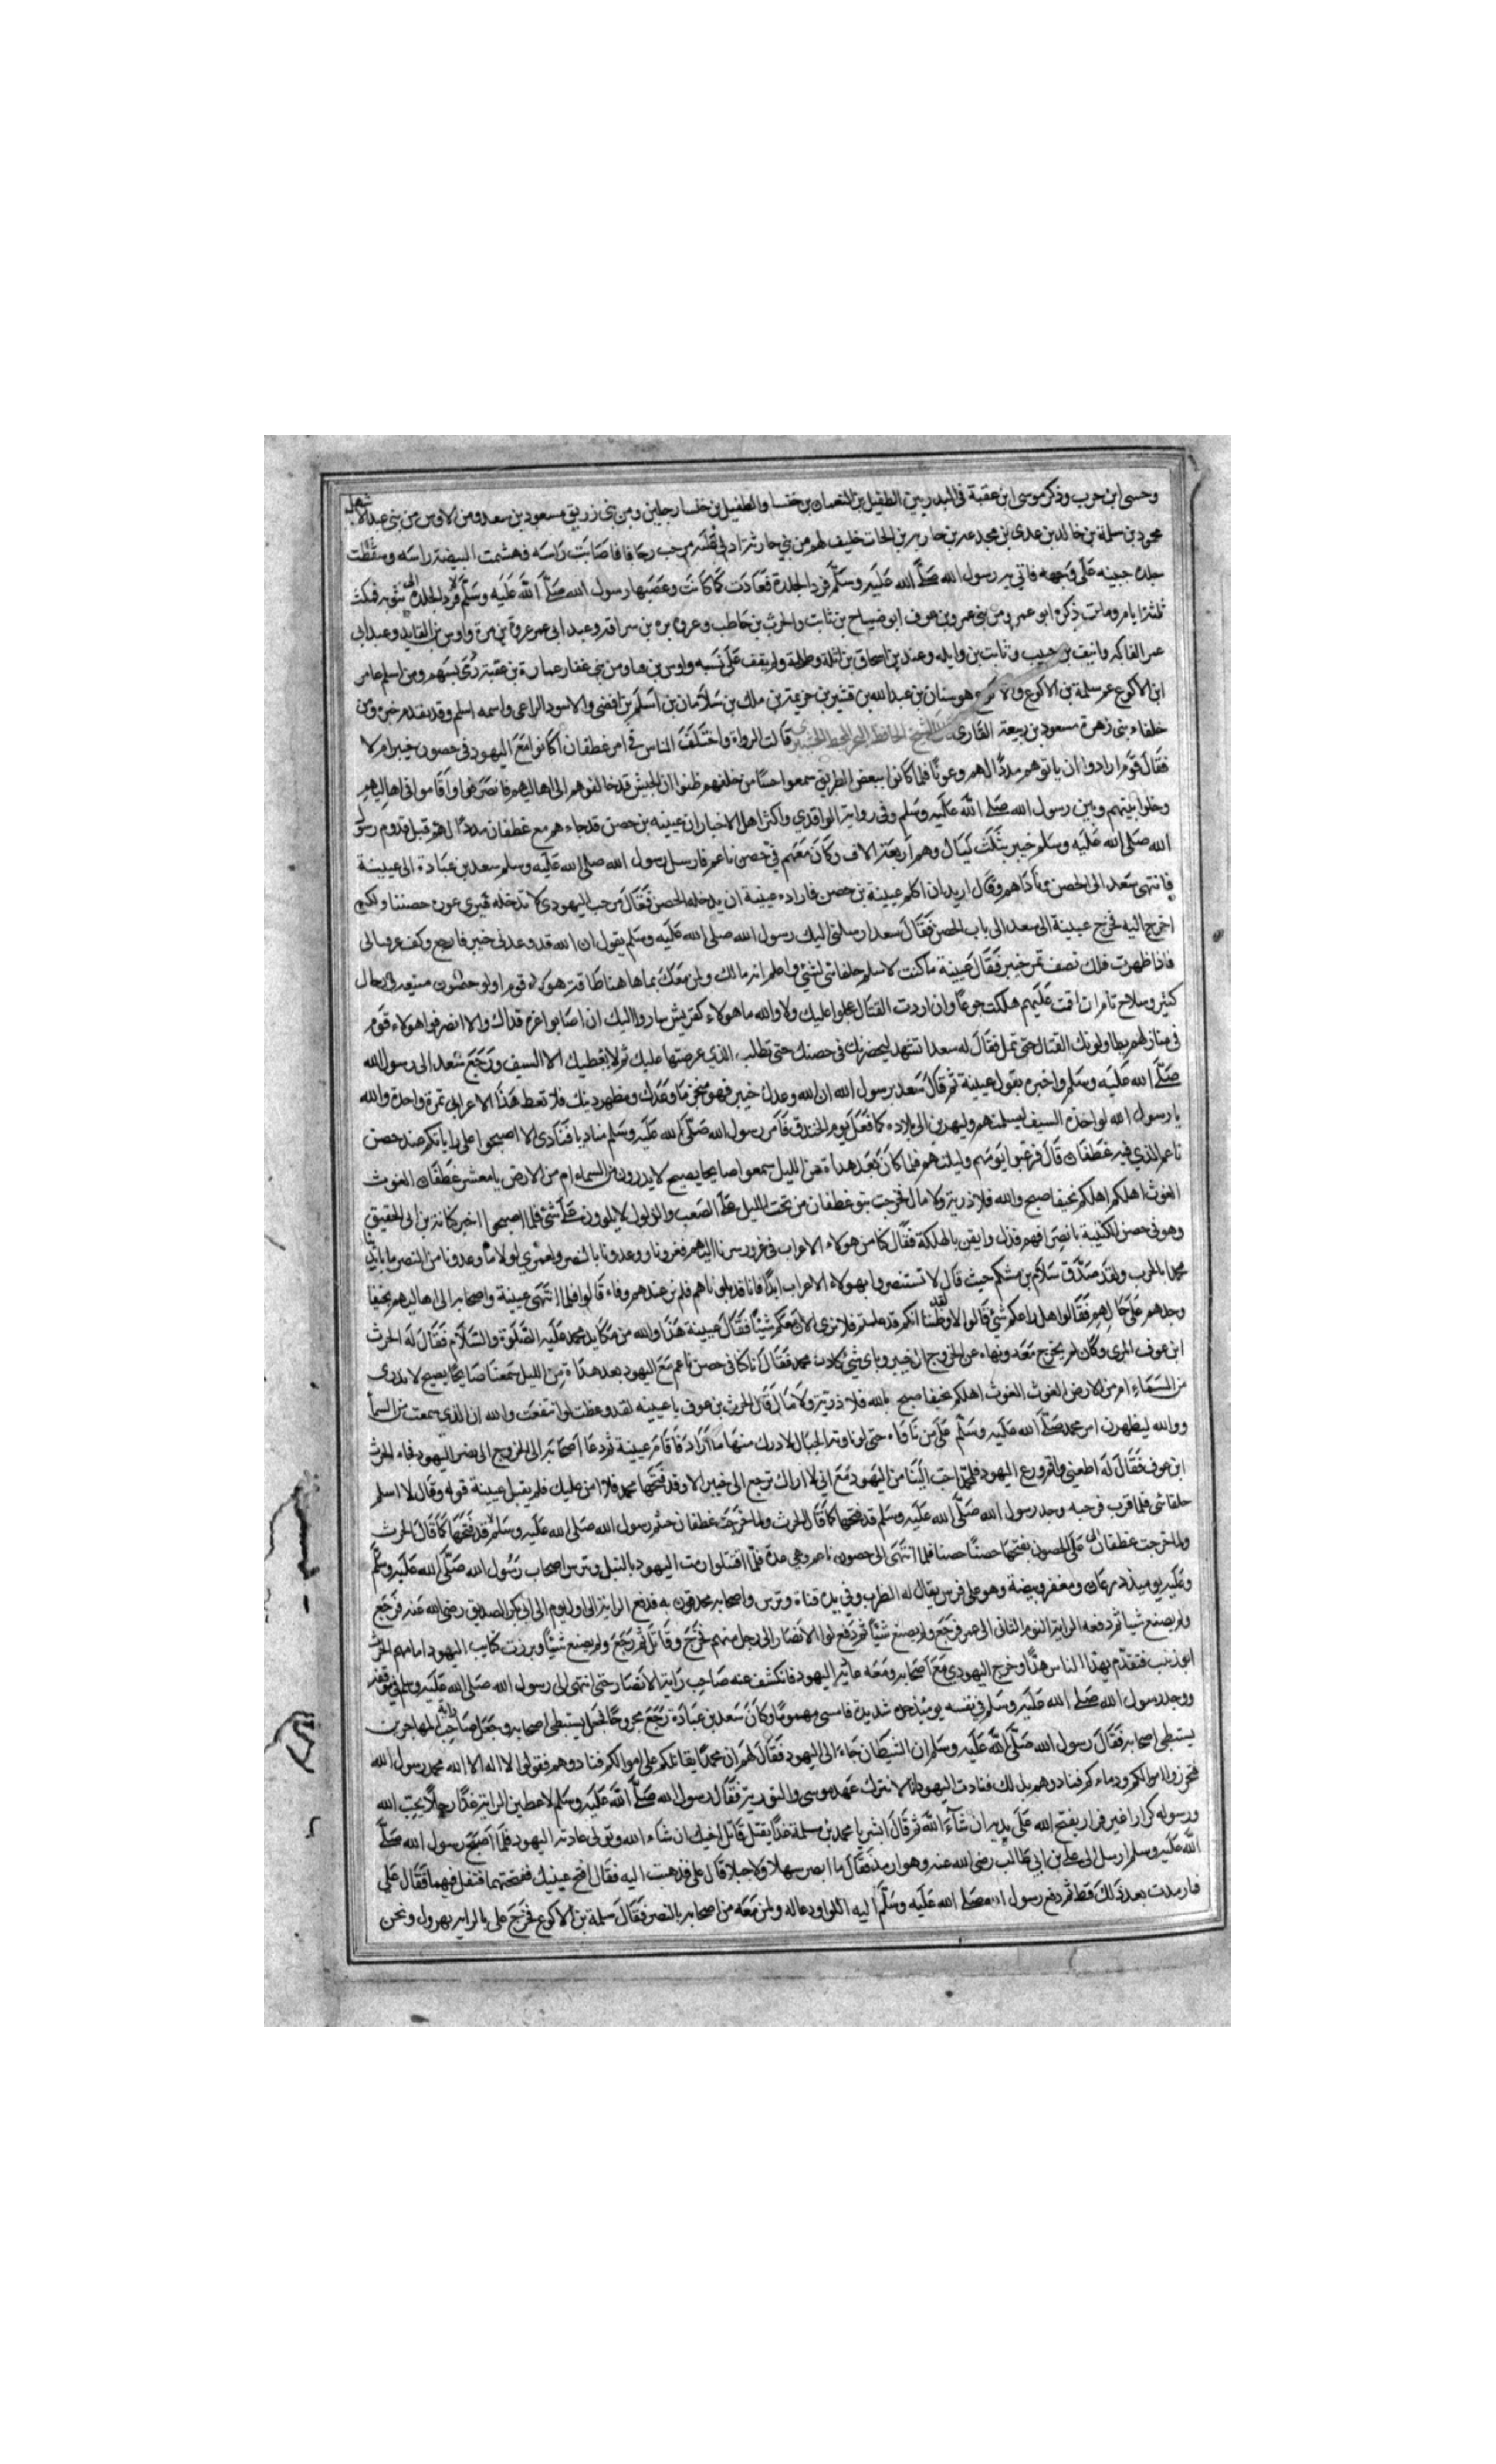 وحسى ابن حرب وذكر موسى ابن عقبة فى البدريين الطفيل بن النعمان بن خنسا والطفيل بن خنسا رجلين ومن بنى زريق مسعود بن سعد ومن الاوس من بنى عبد الاشهل
محمود بن سلمة بن خالد بن عدى بن مجدعه بن حارثه بن الحارث حليف لهم من بني حارثة ادلى عليه مرحب رحا فاصابت راسه فهشمت البيضة راسه وسقطت
جلدة جبينه على وجهه فاتي به رسول الله صلى الله عليه وسلم فرد الجلدة فعادت كما كانت وعصبها رسول الله صلى الله عليه وسلم بثوبه فمكث
ثلثة ايام ومات ذكره ابو عمر ومن بنى عمرو بن عوف ابو ضياح بن ثابت والحرث بن حاطب وعروة بن مرة بن سراقه وعبد ابى عمر عروة بن مرة واوس بن القايد وعبد ابى
عمر الفاكه وانيف بن حبيب وثابت بن وايله وعند بن اسحاق بن اثلة وطلحة ولم يقف على نسبه واوس بن ومن بنى غفار عمارة بن عقبة رمى بسهم ومن اسلم عامر
ابن الاكوع عم سلمة بن الاكوع والاكوع هو سنان بن عبد الله بن قشير بن خزيمة بن ملك بن سلامان بن اسلم بن افصى والاسود الراعى واسمه اسلم وقد تقدم خبره ومن
خلفاء بنى زهرة مسعود بن ربيعة القارى قالت الرواة واختلف الناس فى امر غطفان اكانوا مع اليهود فى حصون خيبر ام لا
فقال قوم ارادوا ان ياتوهم مددا لهم وعونا فلما كانوا ببعض الطريق سمعوا حسا من خلفهم ظنوا ان الجيش قد خالفوهم الى اهاليهم فانصرفوا واقاموا فى اهاليهم
وخلوا بينهم وبين رسول الله صلى الله عليه وسلم وفى رواية الواقدي واكثر اهل الاخبار ان عيينه بن حصن قد جاءهم مع غطفان مددا لهم قبل قدوم رسول
الله صلى الله عليه وسلم خيبر بثلث ليال وهم اربعة الاف وكان معهم فى حصن ناعم فارسل رسول الله صلى الله عليه وسلم سعد بن عبادة الى عيينة
فانتهى سعد الى الحصن فناداهم وقال اريد ان اكلم عيينة بن حصن فاراد عيينة ان يدخله الحصن فقال مرحب اليهودى لا تدخله فيرى عورة حصننا ولكن
اخرج اليه فخرج عيينة الى سعد الى باب الحصن فقال سعد ارسلنى اليك رسول الله صلى الله عليه وسلم يقول ان الله قد وعدنى خيبر فارجع وكف عن قتالى
فاذا ظهرت فلك نصف تمر خيبر فقال عيينة ما كنت لاسلم حلفائى لشئ واعلم انه مالك ولمن معك بما هاهنا طاقة هولاء قوم اولو حصون منيعة ورجال
كثير وسلاح تام ان اقمت عليهم هلكت جوعا وان اردت القتال عجلوا عليك ولا والله ما هولاء كقريش ساروا اليك ان اصابوا غرة فذاك والا انصرفوا هولاء قوم
فى منازلهم يطاولونك القتال حتى تمل فقال له سعد انا شهد ليحضرنك فى حصنك حتى تطلب الذي عرضتها عليك ثم لا يعطيك الا السيف ورجع سعد الى رسول الله
صلى الله عليه وسلم واخبره بقول عيينة ثم قال سعد يرسول الله ان الله وعدك خيبر فهو منجز ما وعدك ومظهر دينك فلا تعط هذا الاعرابى تمرة واحدة والله
يا رسول الله لو اخذه السيف ليسلمنهم وليهربن الى بلاده كما فعل يوم الخندق فامر رسول الله صلى الله عليه وسلم مناديا فنادى الا اصبحوا على راياتكم عند حصن
ناعم الذي فيه غطفان قال فرعبوا يومهم وليلتهم فلما كان بعد هداة من الليل سمعوا صايحا يصيح لا يدرون من السماء ام من الارض يا معشر غطفان الغوث
الغوث اهلكم اهلكم بحيفا صبح والله فلا ذرية ولا مال فخرجت بنو غطفان من تحت الليل على الصعب والذلول لا يلوون على شئ فلما اصبحوا اخبر كنانة بن ابى الحقيق
وهو فى حصن لكتيبة بانصرافهم فذل وايقن بالهلكة فقال كنا من هولاء الاعراب فى غرور سرنا اليهم فغرونا ووعدونا بالنصر ولعمري لولا ما وعدونا من النصر ما نابذنا
محمدا بالحرب ولقد صدق سلام بن مشكم حيث قال لا تستنصروا بهولاء الاعراب ابدا فانا قد بلوناهم فلم نر عندهم وفاء قالوا فلما انتهى عيينة واصحابه الى اهاليهم بحيفا
وجدهم على حالهم فقالوا هل راعكم شئ قالوا لا ولقد ظننا انكم قد غنمتم فلا نرى الان معكم شيئا فقال عيينة هذا والله من مكايد محمد عليه الصلوة والسلام فقال له الحرث
ابن عوف المرى وكان لم يخرج معه ونهاه عن الخروج الى خيبر وباى شئ كادك محمد فقال انا كنا فى حصن ناعم مع اليهود بعد هداة من الليل سمعنا صايحا يصيح لا ندرى
من السماء ام من الارض الغوث الغوث اهلكم بحيفا صبح بالله فلا ذرية ولا مال قال الحرث بن عوف يا عيينه لقد وعظت لو انتفعت والله ان الذي سمعت من السما
ووالله ليظهرن امر محمد صلى الله عليه وسلم على من ناواه حتى لو ناوته الجبال لادرك منها ما اراد فاقام عيينة ثم دعا اصحابه الى الخروج الى نصر اليهود فجاء الحرث
ابن عوف فقال له اطعنى واقم ودع اليهود فلمحمد احب الينا من اليهود مع انى لا اراك ترجع الى خيبر الا وقد فتحها محمد فلا امن عليك فلم يقبل عيينة قوله وقال لا اسلم
حلفائى فلما قرب فرحبه وجد رسول الله صلى الله عليه وسلم قد فتحها كما قال الحرث ولما خرجت غطفان حثم رسول الله صلى الله عليه وسلم قد فتحها كما قال الحرث
ولما خرجت غطفان الى على الحصون يفتحها حصنا حصنا فلما انتهى الى حصون ناعم وهي عدة فلما اقتتلوا رمت اليهود بالنبل وترس اصحاب رسول الله صلى الله عليه وسلم
وعليه يوميذ درعان ومغفر وبيضة وهو على فرس يقال له الظرب وفي يده قناة وترس واصحابه محدقون به فدفع الراية الى اول يوم الى ابى بكر الصديق رضى الله عنه فرجع
ولم يصنع شيا ثم دفعه الراية اليوم الثانى الى عمر فرجع ولم يصنع شيا ثم دفع لوا الانصار الى رجل منهم فخرج وقاتل ثم رجع ولم يصنع شيا وبرزت كتايب اليهود امامهم الحرث
ابو زينب فتقدم يهد الناس هدا وخرج اليهودي مع اصحابه ومعه عاثر اليهود فانكشف عنه صاحب راية الانصار حتى انتهى الى رسول الله صلى الله عليه وسلم فى موقفه
ووجد رسول الله صلى الله عليه وسلم فى نفسه يوميذ حدة شديدة فامسى مهموما وكان سعد بن عبادة رجع مجروحا فجعل يستبطى اصحابه وجعل صاحب راية المهاجرين
يستبطى اصحابه فقال رسول الله صلى الله عليه وسلم ان الشيطان جاء الى اليهود فقال لهم ان محمدا يقاتلكم على اموالكم فنادوهم فقولوا لا اله الا الله محمد رسول الله
تحرزوا اموالكم ودماءكم فنادوهم بذلك فنادت اليهود انا لا نترك عهد موسى والتورية فقال رسول الله صلى الله عليه وسلم لاعطين الراية غدا رجلا يحب الله
ورسوله كرارا غير فرار يفتح الله على يديه ان شاء الله ثم قال ابشر يا محمد بن مسلمة غدا يقتل قاتل اخيك ان شاء الله وتولى عادية اليهود فلما اصبح رسول الله صلى
الله عليه وسلم ارسل الى على بن ابي طالب رضى الله عنه وهو ارمد فقال ما ابصر سهلا ولا جبلا قال على فذهبت اليه فقال افتح عينيك ففتحتهما فتفل فيهما فقال على
فما رمدت بعد ذلك قط ثم دفع رسول الله صلى الله عليه وسلم اليه اللوا ودعا له ولمن معه من اصحابه بالنصر فقال سلمة بن الاكوع فخرج على بالراية يهرول ونحن